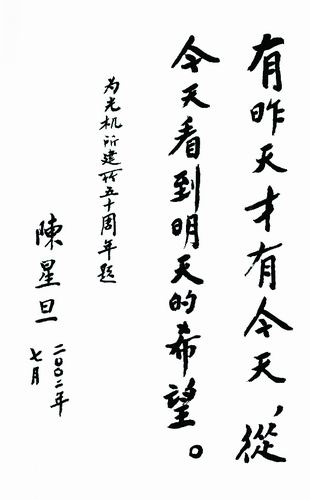 有昨天才有今天,從
今天看到明天的希望。
为光机所建所五十周年题
陳星旦
二〇〇二年
七月